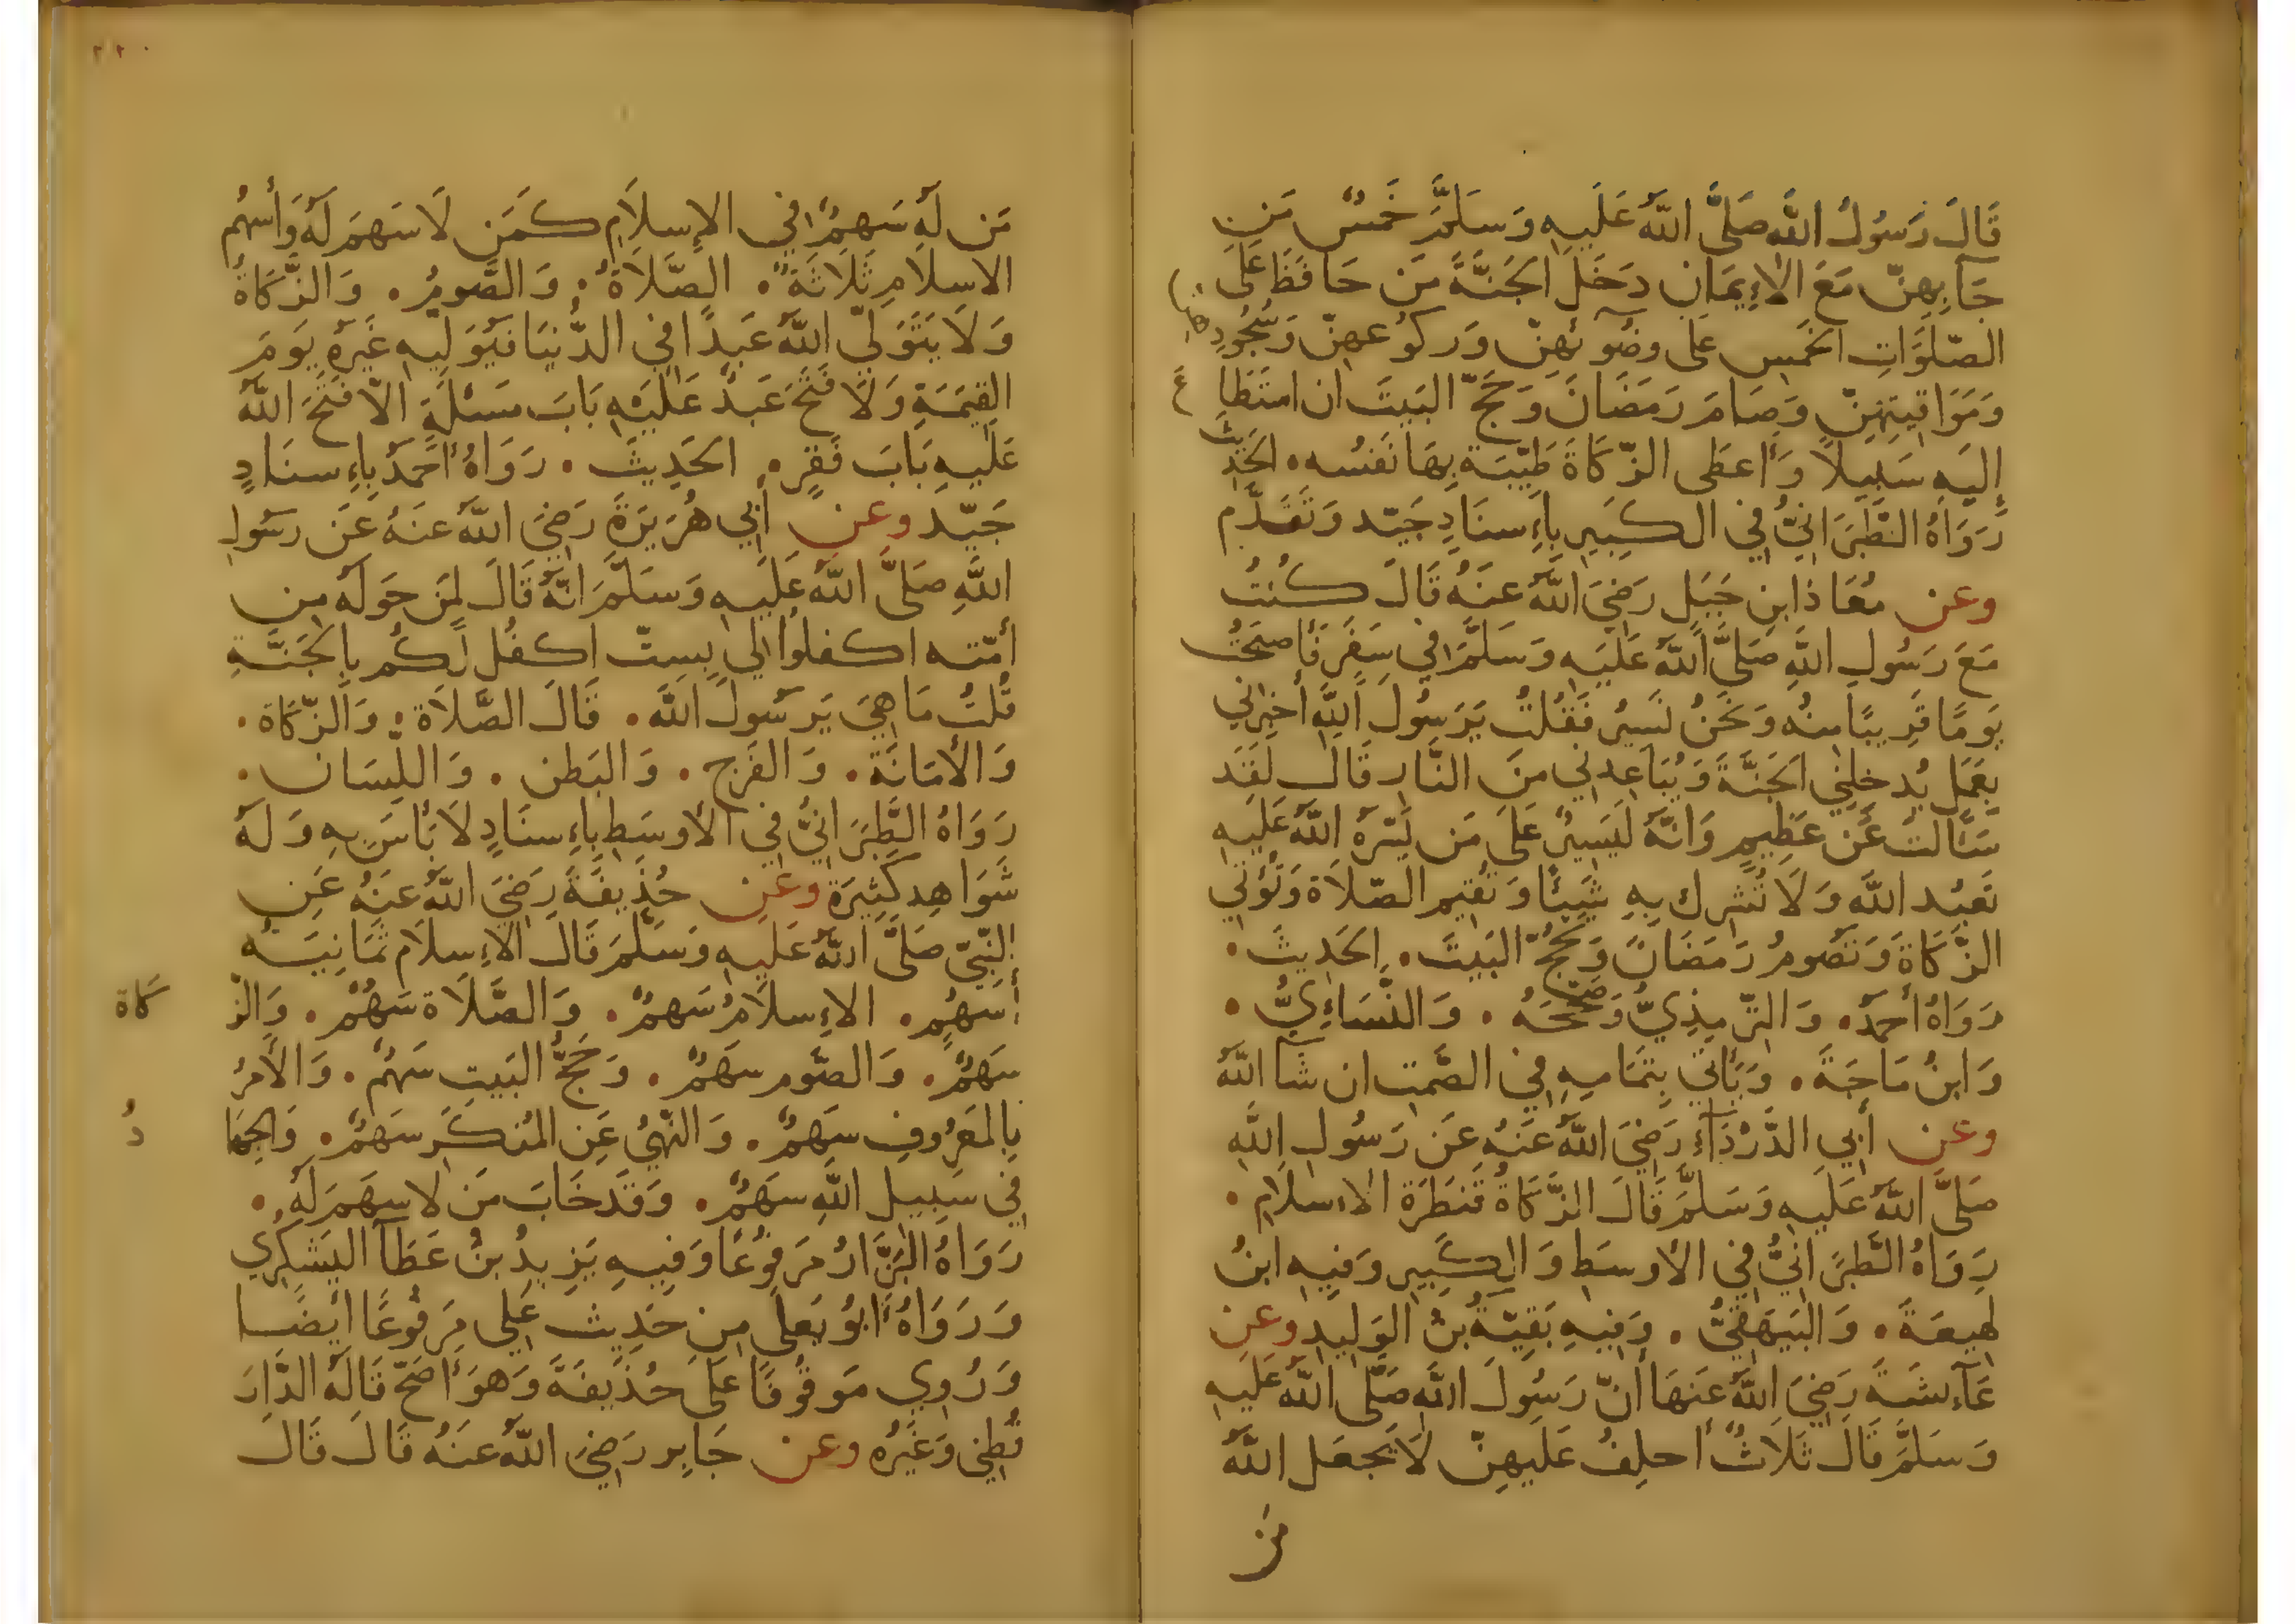 قَالَ رَسُولُ اللَّهِ صَلَّى اللَّهُ عَلَيهِ وَسَلَّمَ خَمسٌ مَن
جَآبِهِنّ مَعَ الاِيمَانِ دَخَلَ الجَنَّةَ مَن حَافَظَ عَلَى
الصّلَوَاتِ الخَمسِ عَلَى وضُوئهِنّ وَركُوعهِنّ وَسُجُودِهِنّ
وَمَوَاقِيتِهِنّ وَصَامَ رَمَضَانَ وَحَجّ البَيتَ ان استَطَاعَ
إِلَيهِ سَبِيلاً وَأَعطَى الزّكَاةَ طَيّبَة بِهَا نَفسُه . الحَدِيثَ
رَوَاهُ الطَّبَرَانِيُّ فِي الكَبِيرِ بِاِسنَادٍ جَيّد وَتَقَدَّم
وعن مُعَاذ ابنِ جَبَلٍ رَضِيَ اللَّهُ عنَهُ قَالَ كُنتُ
مَعَ رَسُولِ اللَّهِ صَلَّى اللَّهُ عَلَيهِ وَسَلَّمَ فِي سَفَرٍ فَأَصبَحتُ
يَومًا قَرِيبًا مِنهُ وَنَحنُ نَسِيرُ فَقُلتُ يَرَسُولَ اللَّهِ أَخبِرنِي
بِعَمَلٍ يُدخِلنِي الجَنَّةَ وَيُبَاعِدنِي مِنَ النَّارِ قَالَ لَقَد
سَأَلتَ عَن عَظِيمٍ وَانَّهُ لَيَسِيرٌ عَلَى مَن يَسّرَهُ اللَّهُ عَلَيهِ
تَعبُد اللَّهَ وَلَا تُشرِك بِهِ شَيئًا وَتُقِيم الصّلَاةَ وَتُؤتِي
الزّكَاةَ وَتَصُومُ رَمَضَانَ وَتَحُجُّ البَيتَ . الحَدِيثَ .
رَوَاهُ أَحمَدُ . وَالتّرمِذِيُّ وَصَحّحَهُ . وَالنَّسَاءِيُّ .
وَابنُ مَاجَةَ . وَيَأتِي بِتَمَامِهِ فِي الصَّمتِ ان شَآ اللَّهُ
وعن أَبِي الدَّرْدَآءِ رَضِيَ اللَّهُ عَنهُ عَن رَسُولِ اللَّهِ
صَلَّى اللَّهُ عَلَيهِ وَسَلَّمَ قَالَ الزَّكَاةُ قَنطَرَة الاِسلَامِ .
رَوَاهُ الطَّبَرَانِيُّ فِي الأَوسَطِ وَالكَبِيرِ وَفِيهِ ابنُ
لهِيعَةَ . وَالبَيهَقِيُّ . وَفِيهِ بَقِيّةُ بنُ الوَلِيدِ وعن
عَآءِشَةَ رَضِيَ اللَّهُ عَنهَا أَنّ رَسُولَ اللَّهِ صَلَّى اللَّهُ عَلَيهِ
وَسَلَّمَ قَالَ ثَلَاثٌ أَحلِفُ عَلَيهِنّ لَا يَجعَل اللَّهُ
مَن
٢٢٠
مَن لَهُ سَهمٌ فِي الإِسلَامِ كَمَن لَا سَهمَ لَهُ وَأَسهُم
الاسِلَامِ ثَلَاثَةٌ . الصَّلَاةُ . وَالصَّومُ . وَالزَّكَاةُ
وَلَا يَتَوَلَّى اللَّهُ عَبدًا فِي الدُّنيَا فَيُوَلِيهِ غَيرَهُ يَومَ
القِيمَةِ وَلَا فَتَحَ عَبدٌ عَلَيهِ بَابَ مَسئَلَةٍ الاّ فَتَحَ اللَّهُ
عَلَيهِ بَابَ فَقرٍ . الحَدِيثَ . رَوَاهُ أَحمَدُ بِاِسنَادٍ
جَيّد وعن أَبِي هُرَيرَةَ رَضِيَ اللَّهُ عنَهُ عَن رسُولِ
اللَّهِ صَلَّى اللَّهُ عَلَيهِ وَسَلَّمَ انّهُ قَالَ لِمَن حَولَهُ مِن
أُمّته اكفلُوا لِي بِستّ اكفُل لَكُم بِالجَنَّةِ
قُلتُ مَا هِيَ يَرسُولَ اللَّهِ . قَالَ الصَّلَاة . وَالزّكَاة .
وَالأَمَانَة . وَالفَرج . وَالبَطن . وَاللِّسَان .
رَوَاهُ الطَّبَرَانِيُّ فِي الأَوسَطِ بِاِسنَادٍ لَا بَأسَ بِهِ وَلَهُ
شَوَاهِد كَثِيرَة وعَن حُذَيفَةَ رَضِيَ اللَّهُ عنَهُ عَنِ
النّبِيّ صَلَّى اللَّهُ عَلَيهِ وَسَلَّمَ قَالَ الاِسلَام ثَمَانِيَةُ
أَسهُمٍ . الاِسلَامُ سَهمٌ . وَالصَّلَاة سَهمٌ . وَالزّكَاة
سَهمٌ . وَالصَّوم سَهمٌ . وَحَجُّ البَيتِ سَهم . وَالأَمرُ
بِالمَعرُوفِ سَهمٌ . وَالنّهيُ عَنِ المُنكَر سَهمٌ . وَالجِهَادُ
فِي سَبِيلِ اللَّهِ سَهمٌ . وَقَد خَابَ مَن لَا سهَمَ لَهُ .
رَوَاهُ البَزَّارُ مَرفُوعًا وَفِيهِ يَزِيدُ بنُ عَطَآ اليَشكُرِي
وَرَوَاهُ ابُو يَعلَى مِن حَدِيث عَلِي مَرفُوعًا ايضًا
وَرُوِي مَوقُوفًا عَلَى حُذَيفَةَ وَهوَ أَصَحّ قَالَهُ الدَّارَ
قُطنِي وَغَيرُه وعن جَابِر رَضِيَ اللَّهُ عنَهُ قَالَ قَالَ